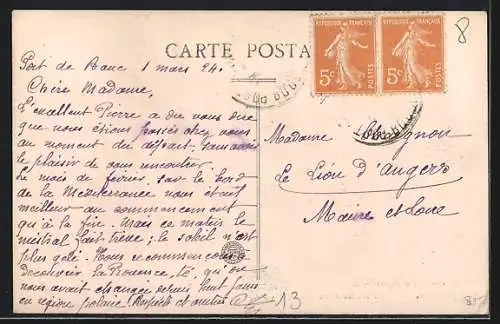 CARTE POSTA
RÉPUBLIQUE FRANÇAISE
5c POSTES
RÉPUBLIQUE FRANÇAISE
5c POSTES
8
Port de Bouc 1 mars 24.
Chère Madame,
L'excellent Pierre a dû vous dire
que nous étions passés chez vous
au moment du départ, sans avoir
le plaisir de vous rencontrer
Le mois de février, sur le bord
de la Méditerranée nous était
meilleur au commencement
qu'à la fin. Mais ce matin le
mistral fait trêve ; le soleil n'est
plus gelé. Nous recommençons à
découvrir la Provence, té, qu'on
nous avait changée depuis huit jours
en région polaire. Respects et amitiés
Madame
Le Lion d'Angers
Maine et Loire
13